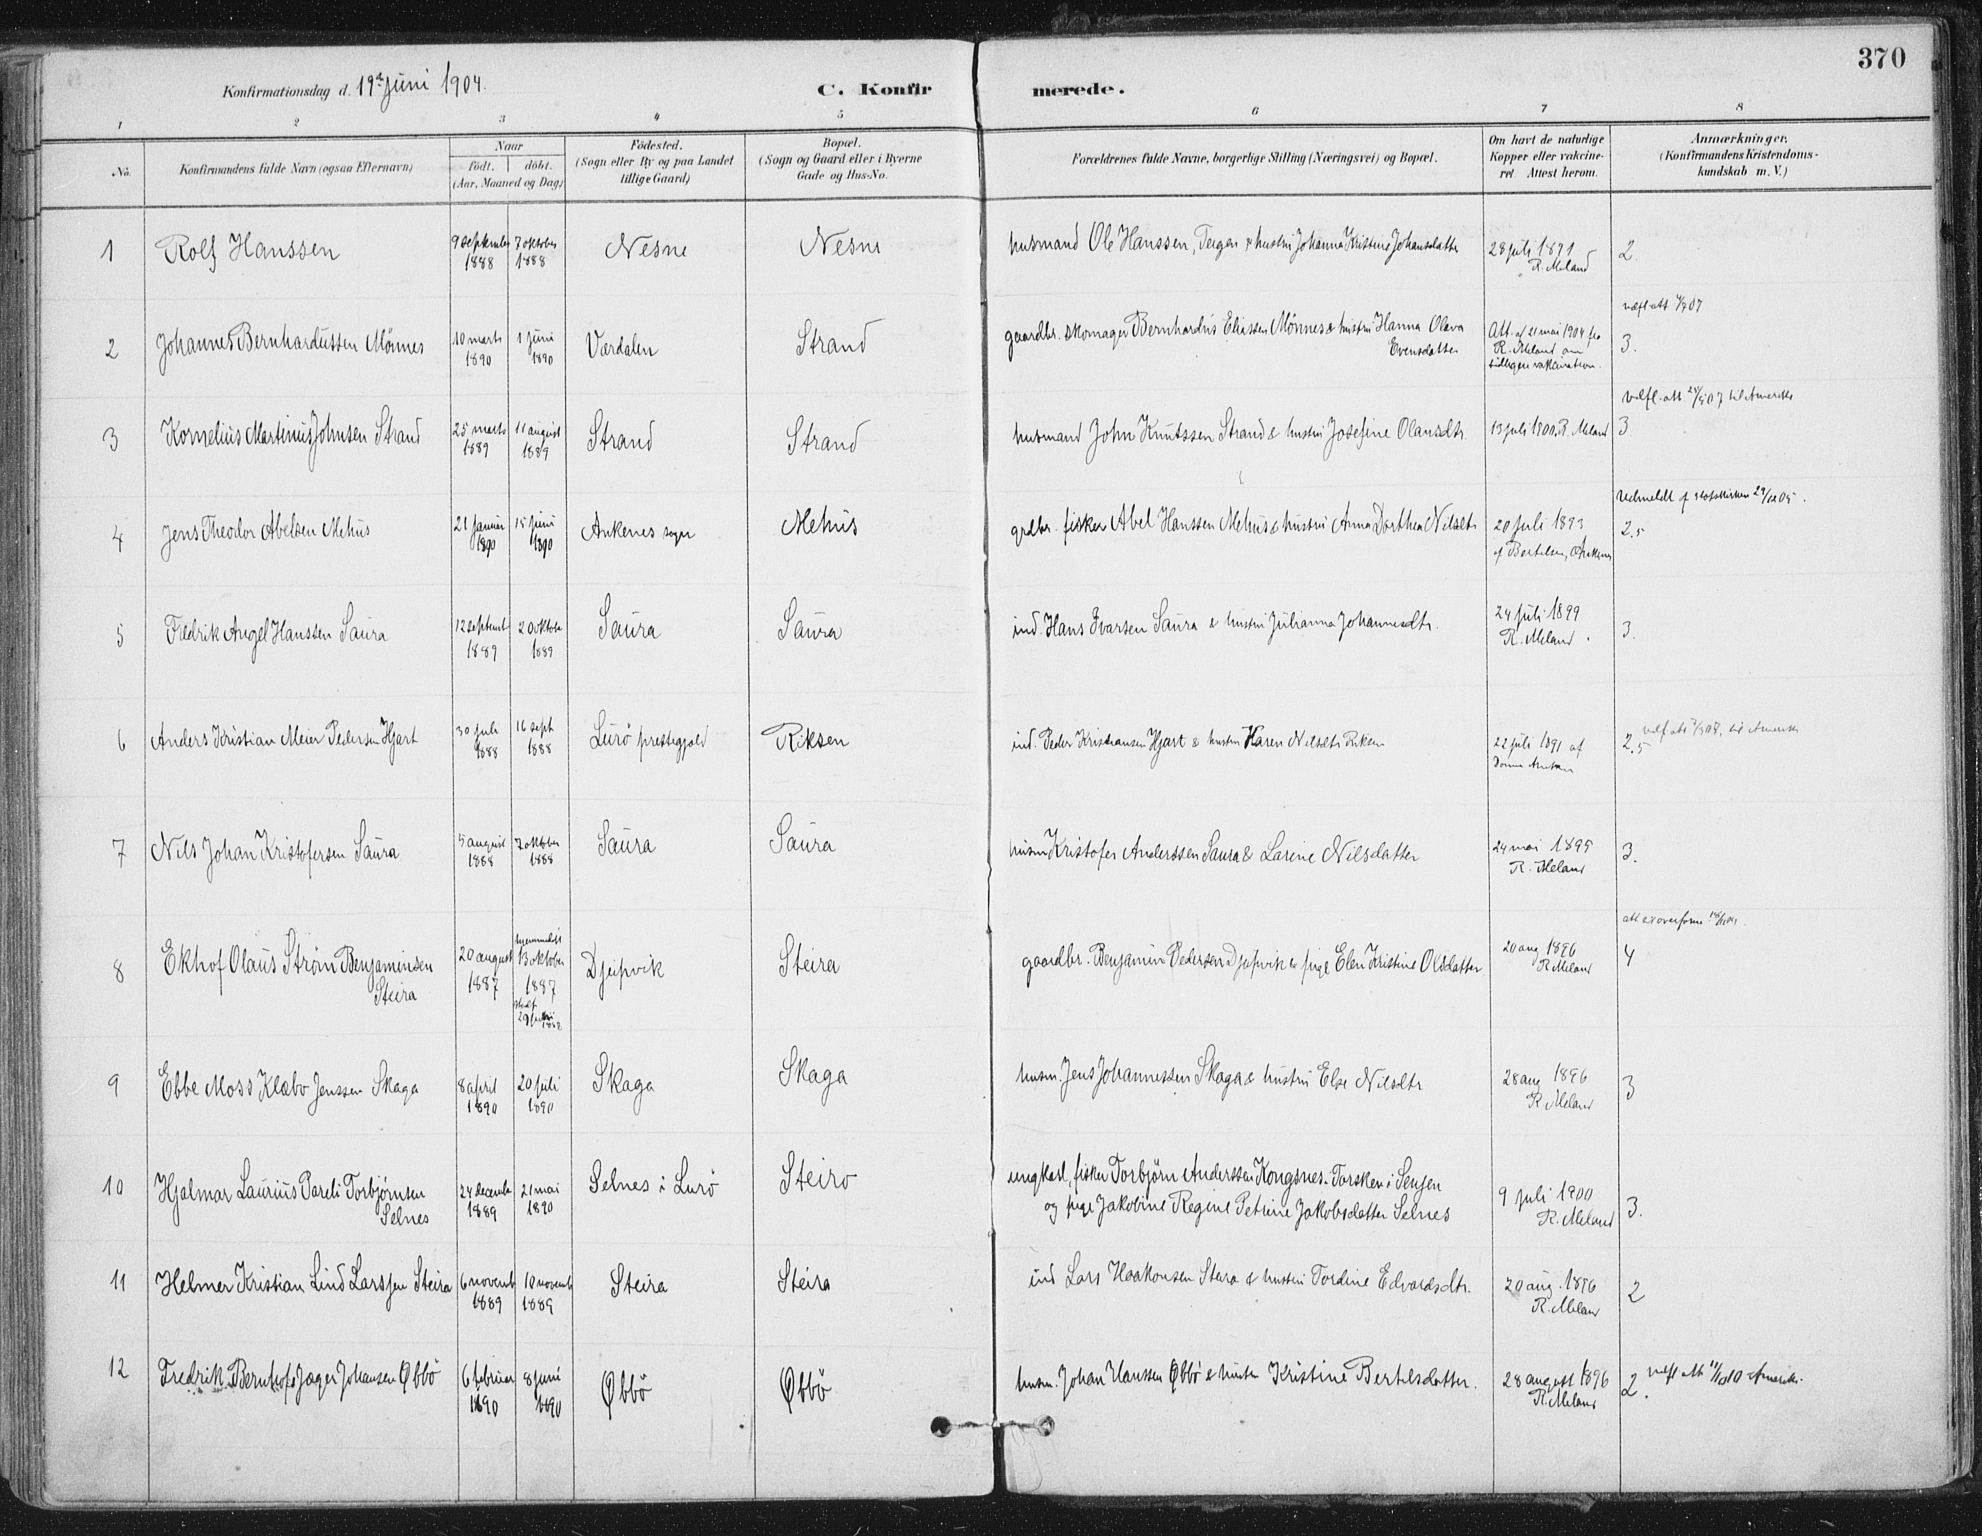 370
Konfirmationsdag d. 19de Juni 1904.
C. Konfir merede.
1 2 3 4 5 6 7 8
No.
Konfirmandens fulde Navn (ogsaa Efternavn)
Naar
födt. döbt.
(Aar, Maaned og Dag)
Födested.
(Sogn eller By og paa Landet
tillige Gaard)
Bopæl.
(Sogn og Gaard eller i Byerne
Gade og Hus-No.
Forældrenes fulde Navne, borgerlige Stilling (Næringsvei) og Bopæl.
Om havt de naturlige
Kopper eller vakcine-
ret Attest herom.
Anmærkninger.
(Konfirmandens Kristendoms-
kundskab m. V.)
1 Rolf Hanssen 9 september 7 oktober Nesne Nesne husmand Ole Hanssen, Teigen & hustru Johanna Kristine Johansdatter 28 juli 1891 2.
1888 1888 R. Meland
vafl. att 07
2 Johannes Bernhardussen Mönnes 10 marts 1 juni Værdalen Strand gaardbr. skomager Bernhardus Eliassen Mönnes & hustru Hanna Olava Att. af 21 mai 1904 fra 3.
1890 1890 Evensdatter R. Meland om
tidligere vakcination.
vafl. att 07 til Amerika
3 Kornelius Martinus Johnsen Strand 25 marts 11 august Strand Strand husmand John Knutssen Strand & hustru Josefine Olausdtr. 13 juli 1900. R. Meland 3
1889 1889
Udmeldt af statskirken 29/12 05.
4 Jens Theodor Abelsen Mehus 21 januar 15 juni Ankenes sogn Mehus grdbr. fisker Abel Hanssen Mehus & hustru Anna Dorthea Nilsdtr 20 juli 1893 2.5
1890 1890 af Bertelsen, Ankenes
5 Fredrik Angel Hanssen Saura 12 septemb 20 oktober Saura Saura ind. Hans Ivarsen Saura & hustru Julianna Johannesdtr. 24 juli 1899 3.
1889 1889 R. Meland
6 Anders Kristian Meier Pedersen Hjart 30 juli 16 sept Lurö prestegjeld Riksen ind. Peder Kristiansen Hjart & hustru Karen Nilsdtr Riksen 22 juli 1891 af 2.5 til Amerika
1888 1888
7 Nils Johan Kristofersen Saura 5 august 7 oktober Saura Saura husm Kristofer Anderssen Saura & Larine Nilsdatter 24 mai 1895 3.
1888 1888 R. Meland
8 Ekhof Olaus Ström Benjaminsen 20 august hjemmedöbt 13 oktober Djupvik Steira gaardbr. Benjamin Pedersen Djupvik & pige Elen Kristine Olsdatter 20 aug 1896 4
Steira 1887 1887 R. Meland
9 Ebbe Moss Klæbo Jenssen Skaga 8 april 20 juli Skaga Skaga husm. Jens Johannessen Skaga & hustru Else Nilsdtr 28 aug 1896 3
1890 1890 R. Meland
10 Hjalmar Laurius Pareli Torbjørnsen 24 decembr 21 mai Selnes i Lurö Steiro ungkarl, fisker Torbjörn Anderssen Kongsnes. Torsken i Senjen 9 juli 1900 3.
Selnes 1889 1890 og pige Jakobine Regine Petrine Jakobsdatter Selnes R. Meland
11 Helmer Kristian Lind Larssen Steira 6 novemb 10 novemb Steira Steira ind Lars Haakonsen Steira & hustru Tordine Edvardsdtr. 20 aug. 1896 2
1889 1889 R. Meland
12 Fredrik Bernhoft Jæger Johansen Øbbö 6 februar 8 juni Øbbö Øbbö husm. Johan Hanssen Øbbö & hustru Kristine Bertelsdatter. 28 august 1896 2. vafl att Amerika
1890 1890 R. Meland